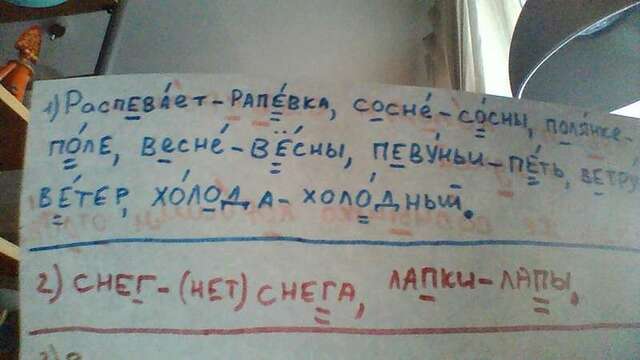 1) Распева́ет - рапе́вка, сосне́ - со́сны, поля́нке -
по́ле, весне́ - вёсны, певу́ньи - пе́ть, ветру
ве́тер, хо́лода - холо́дный.
2) снег - (нет) снега, лапки - лапы.